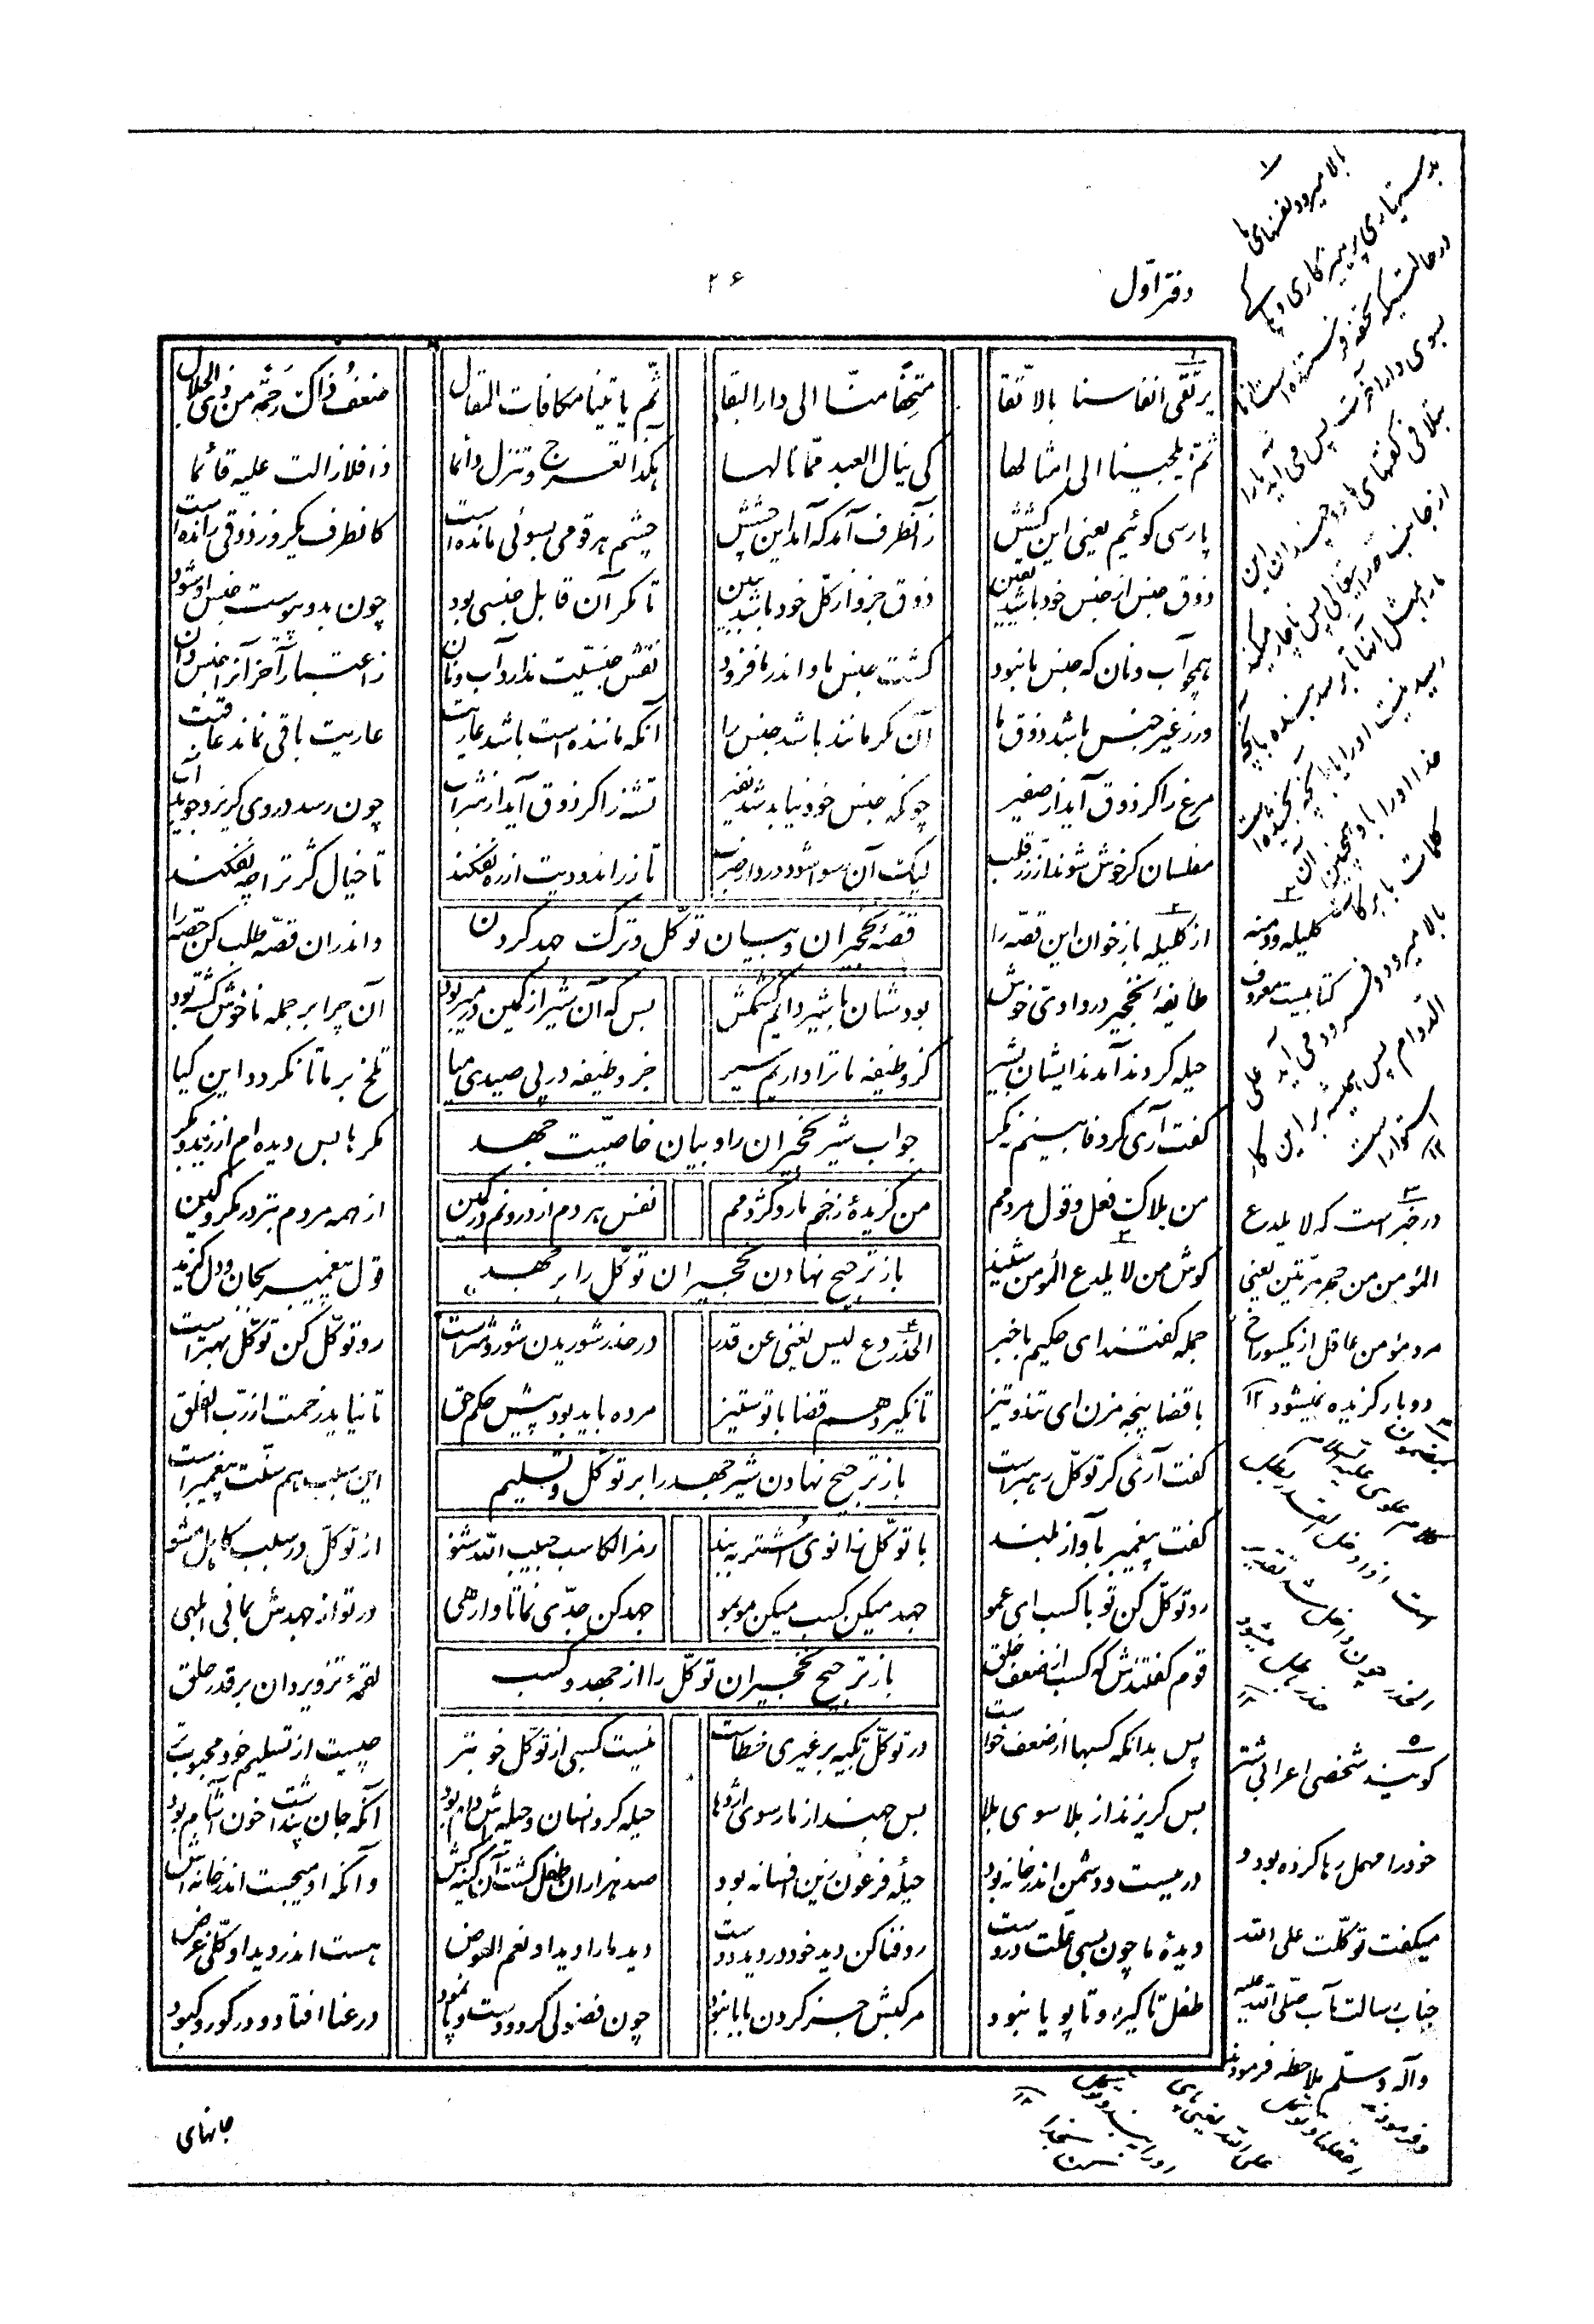 دفتر اوّل
۲۶
یرتقی انفاسنا بالاتّقا متحفا منّا الی دار البقا ثمّ یاتینا مکافات المقال ضعف ذاک رحمة من ذی الجلال
ثمّ یلجینا الی امثالها کی ینال العبد ممّا نالها هکذا تعرج و تنزل دائما ذا فلا زالت علیه قائما
پارسی کوئیم یعنی این کشش زآنطرف آمد که آمد این چشش چشم هر قومی بسوئی مانده است کانطرف یکروز ذوقی رانده است
ذوق جنس از جنس خود باشد یقین ذوق جزو از کلّ خود باشد ببین تا مکر آن قابل جنسی بود چون بدو پیوست جنس او شود
همچو آب و نان که جنس ما نبود کشت جنس ما و اندر ما فزود نقش جنسیّت ندارد آب و نان زاعتبار آخر آنرا جنس دان
ور ز غیر جنس باشد ذوق ما آن مکر مانند باشد جنس را آنکه مانندهاست باشد عاریت عاریت باقی نماند عاقبت
مرغ را کر ذوق آید از صفیر چونکه جنس خود نیابد شد نفیر تشنه را کر ذوق آید از شراب چون رسد در وی کریزد جوید آب
مفلسان کر خوش شوند از زرّ قلب لیک آن رسوا شود در دار ضرب تا زر اندودیت از ره نفکند تا خیال کژ ترا چه نفکند
از کلیله باز خوان این قصّه را و اندران قصّه طلب کن حصّه را
قصّهٔ نخجیران و بیان توکّل و ترک جهد کردن
طایفهٔ نخجیر در وادیّ خوش بودشان با شیر دایم کشمکش بس که آن شیر از کمین درمیربود آن چرا بر جمله ناخوش کشته بود
حیله کردند آمدند ایشان بشیر کز وظیفه ما ترا داریم سیر جز وظیفه در پی صیدی میا تلخ بر ما تا نکردد این کیا
جواب شیر نخجیران را و بیان خاصیّت جهد
کفت آری کر وفا بینم نه مکر مکرها بس دیده‌ام از زید و بکر
من هلاک فعل و قول مردمم من کزیدهٔ زخم مار و کژدمم نفس هر دم از درونم در کمین از همه مردم بتر در مکر و کین
کوش من لا یلدغ المؤمن شنید قول پیغمبر بجان و دل کزید
باز ترجیح نهادن نخجیران توکّل را بر جهد
جمله کفتند ای حکیم باخبر الحذر دع لیس یغنی عن قدر در حذر شوریدن شور و شراست رو توکّل کن توکّل بهتراست
با قضا پنجه مزن ای تند و تیز تا نگیرد هم قضا با تو ستیز مرده باید بود پیش حکم حق تا نیاید زخمت از ربّ الفلق
باز ترجیح نهادن شیر جهد را بر توکّل و تسلیم
کفت آری کر توکّل رهبراست این سبب هم سنّت پیغمبراست
کفت پیغمبر بآواز بلند با توکّل زانوی اشتر ببند رمز الکاسب حبیب الله شنو از توکّل در سبب کاهل مشو
رو توکّل کن تو با کسب ای عمو جهد میکن کسب میکن مو بمو جهد کن جدّی نما تا وارهی ور تو از جهدش بمانی ابلهی
باز ترجیح نخجیران توکّل را از جهد و کسب
قوم کفتندش که کسب از ضعف خلق لقمهٔ تزویر دان بر قدر حلق
پس بدانکه کسبها از ضعف خواست در توکّل تکیه بر غیری خطاست نیست کسبی از توکّل خوبتر چیست از تسلیم خود محبوبتر
بس کریزند از بلا سوی بلا بس جهند از مار سوی اژدها حیله کرد انسان و حیله‌اش دام بود آنکه جان پنداشت خون آشام بود
در ببست و دشمن اندر خانه بود حیلهٔ فرعون زین افسانه بود صد هزاران طفل کشت آن کینه‌کش وآنکه او میجست اندر خانه‌اش
دیدهٔ ما چون بسی علّت دروست رو فنا کن دید خود در دید دوست دید ما را دید او نعم العوض هست اندر دید او کلّی غرض
طفل تا کیرا و تا پویا نبود مرکبش جز کردن بابا نبود چون فضولی کرد و دست و پا نمود در عنا افتاد و در کور و کبود
۱ بالا میرود نفسهای ما
بدستیاری پرهیزکاری و پاکی
در حالتیکه تحفه فرستنده است از ما
بسوی دار آخرت پس می آید ما را
۲ کلیله و دمنه
کتابیست معروف
۳ در خبر است که لا یلدغ
المؤمن من جحر مرّتین یعنی
مرد مؤمن عاقل از یکسوراخ
دو بار کزیده نمیشود ۱۲
۵ کویند شخصی اعرابی شتر
خود را مهمل رها کرده بود و
میکفت توکّلت علی الله
جناب رسالت مآب صلّی الله علیه
و آله و سلّم ملاحظه فرمودند
جانهای